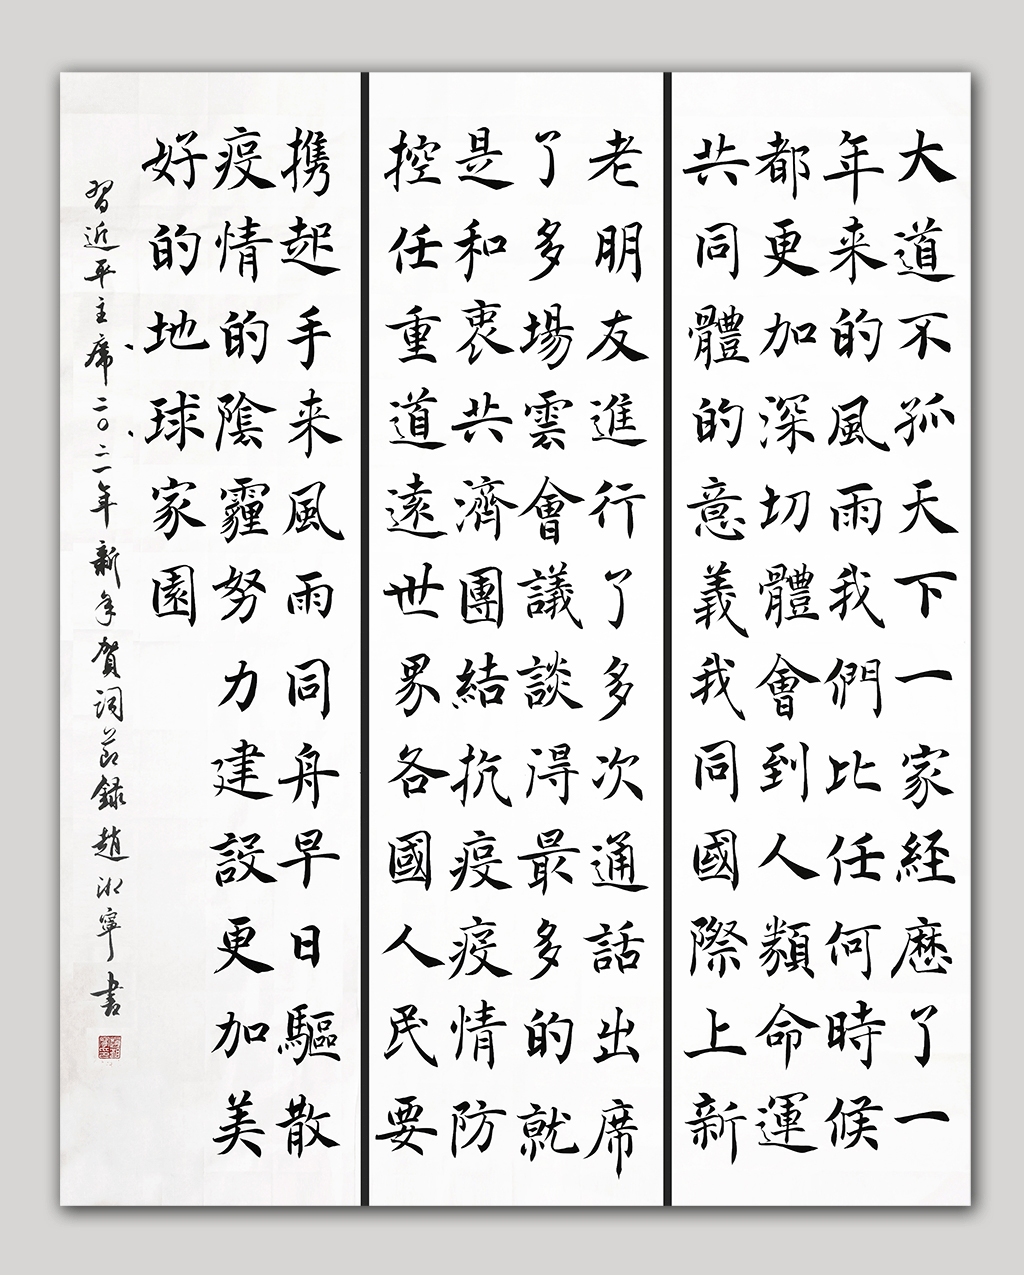 大道不孤天下一家経歷了一
年来的風雨我們比任何時候
都更加深切體會到人類命運
共同體的意義我同國際上新
老朋友進行了多次通話出席
了多場雲會議談得最多的就
是和衷共濟團結抗疫疫情防
控任重道遠世界各國人民要
携起手来風雨同舟早日驅散
疫情的陰霾努力建設更加美
好的地球家園
習近平主席二〇二一年新年賀词节錄趙寧书